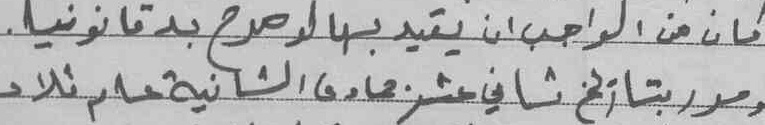 كان من الواجب ان يقيد بها لو صرح به قانونيا.
وحرر بتاريخ ثاني عشر جمادى الثانية عام ثلاث